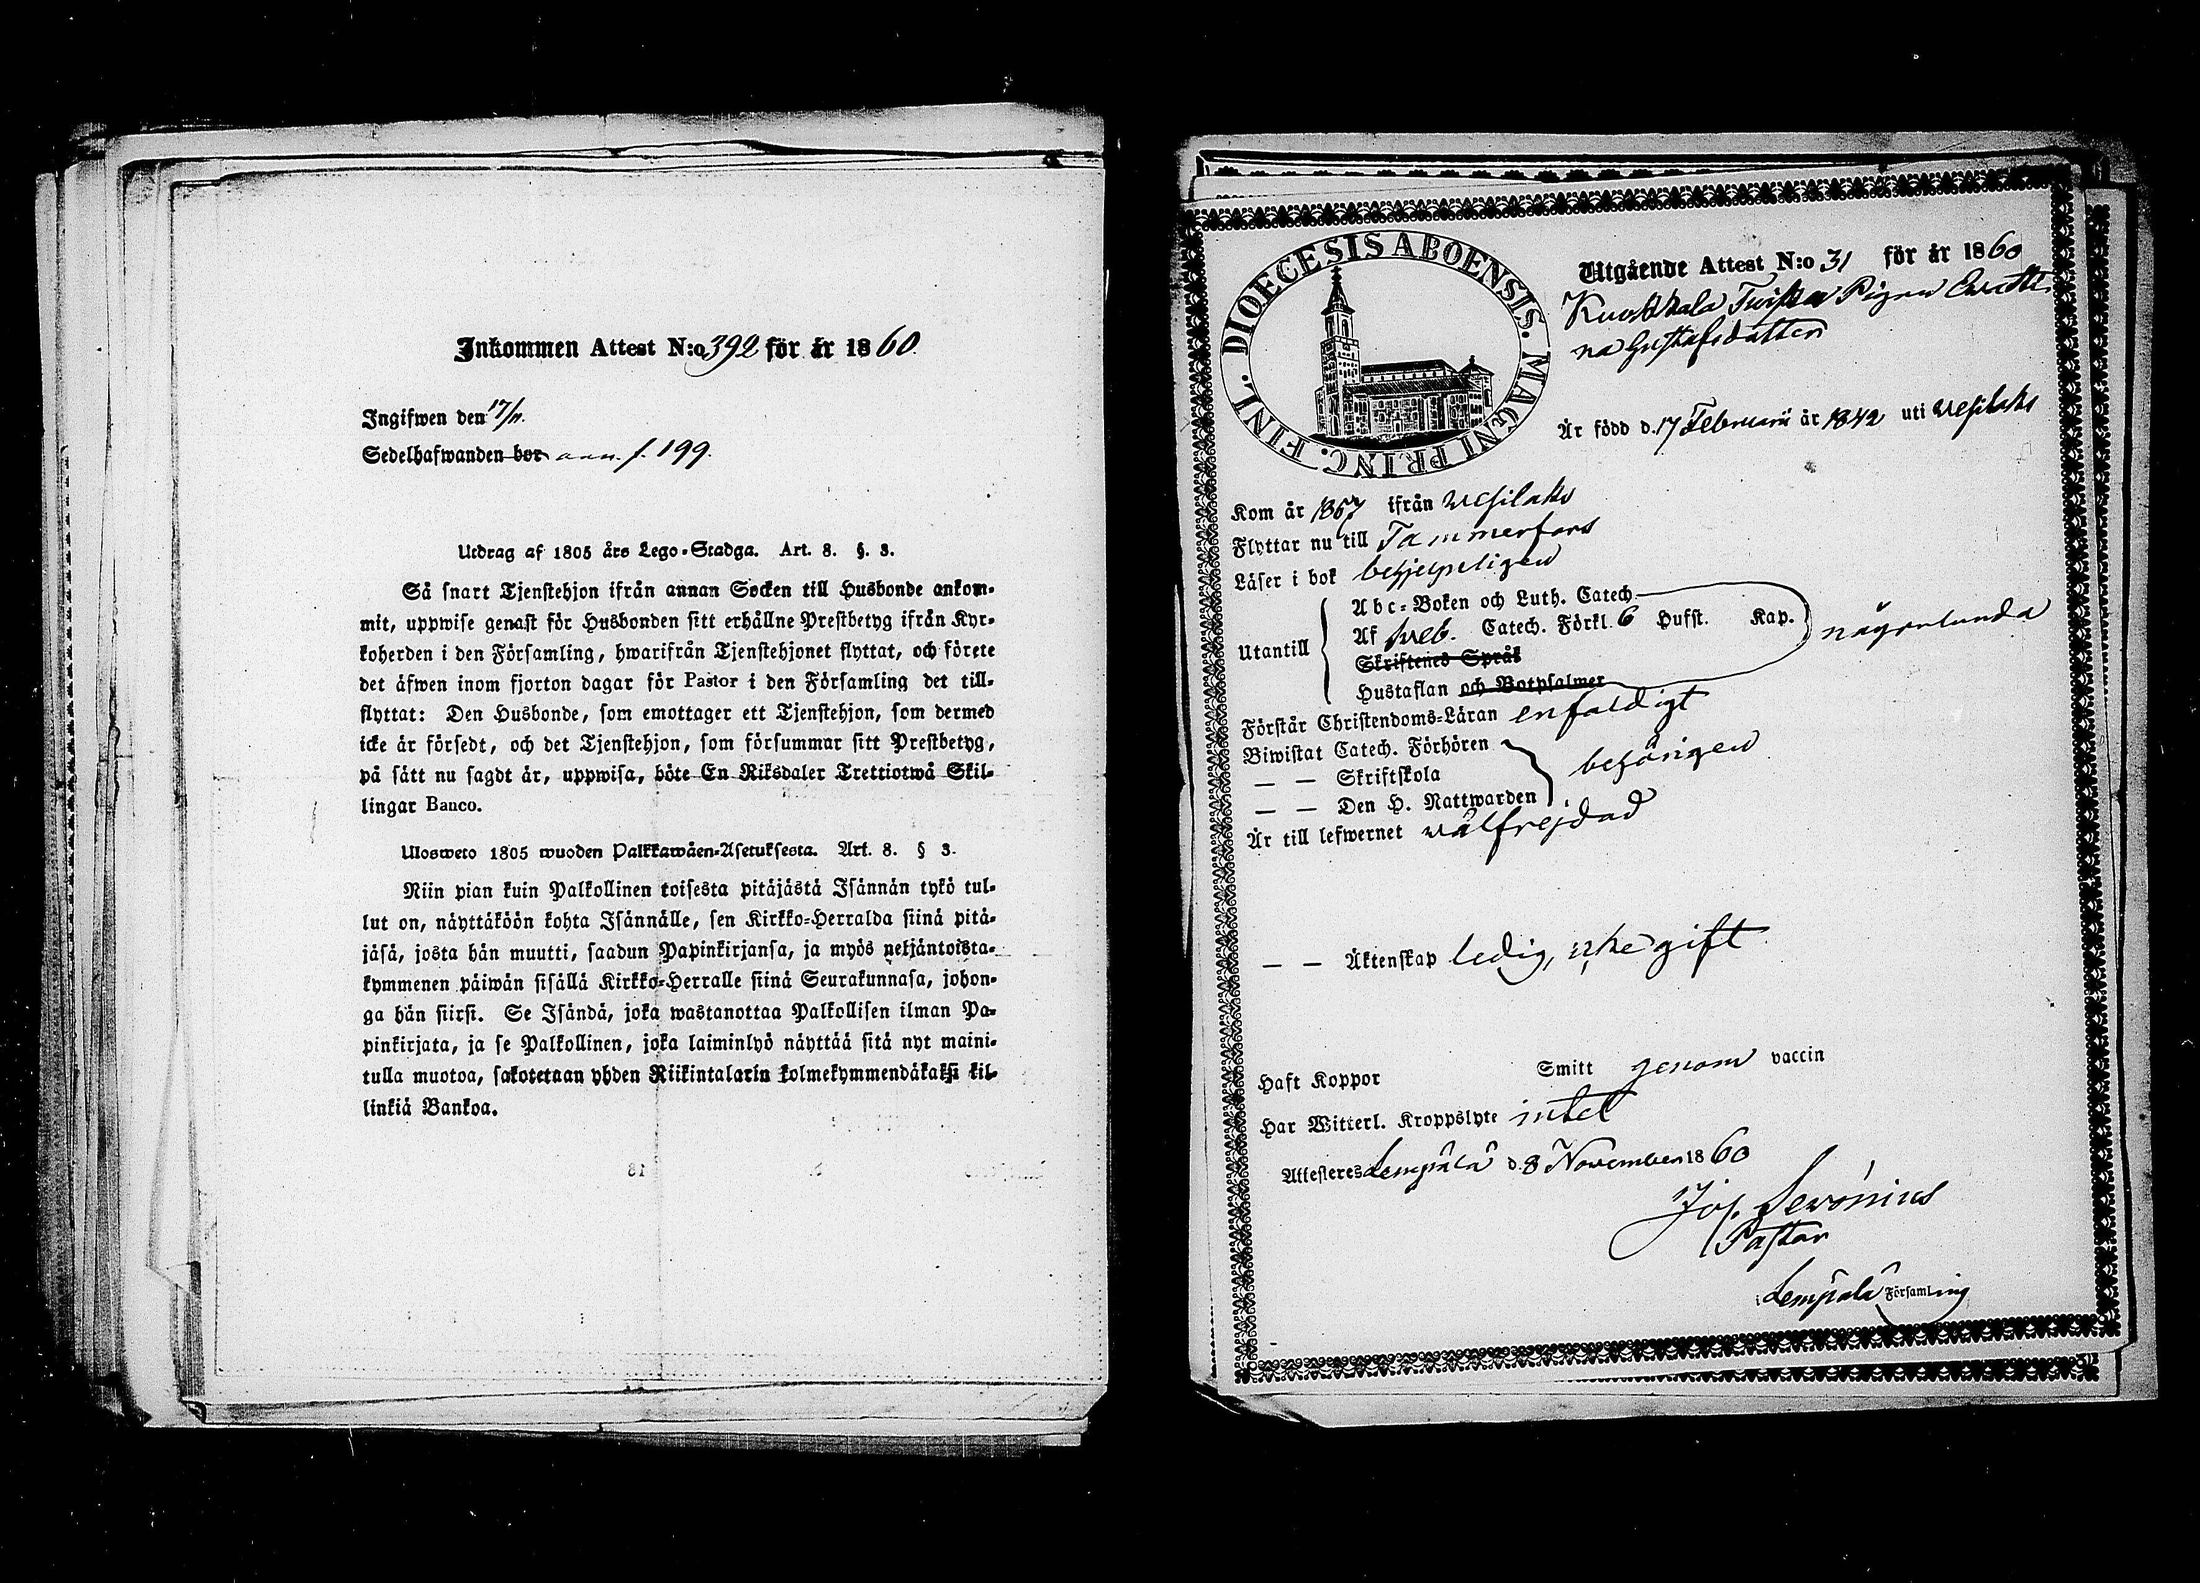 Inkommen Attest N:o 392 för år 1860.
Ingifwen den 17/11.
Sedelhafwanden bor ann. f. 199.
Utdrag af 1805 års Lego-Stadga. Art. 8. §. 3.
Så snart Tjenstehjon ifrån annan Socken till Husbonde ankom-
mit, uppwise genast för Husbonden sitt erhållne Prestbetyg ifrån Kyr-
koherden i den Församling, hwarifrån Tjenstehjonet flyttat, och förete
det äfwen inom fjorton dagar för Pastor i den Församling det till-
flyttat: Den Husbonde, som emottager ett Tjenstehjon, som dermed
icke är försedt, och det Tjenstehjon, som försummar sitt Prestbetyg,
på sätt nu sagdt är, uppwisa, böte En Riksdaler Trettiotwå Skil-
lingar Banco.
Ulosweto 1805 wuoden Palkkawäen-Asetuksesta. Art. 8. § 3.
Niin pian kuin Palkollinen toisesta pitäjästä Isännän tykö tul-
lut on, näyttäköön kohta Isännälle, sen Kirkko-Herralda siinä pitä-
jäsä, josta hän muutti, saadun Papinkirjansa, ja myös neljäntoista-
kymmenen päiwän sisällä Kirkko-Herralle siinä Seurakunnasa, johon-
ga hän siirsi. Se Isändä, joka wastanottaa Palkollisen ilman Pa-
pinkirjata, ja se Palkollinen, joka laiminlyö näyttää sitä nyt maini-
tulla muotoa, sakotetaan yhden Riikintalarin kolmekymmendäkaksi kil-
linkiä Bankoa.
18
DIOECESIS ABOENSIS. MAGNI PRINC. FINL.
Utgående Attest N:o 31 för år 1860
Kuokkala Pigan Ewasti
na Gustafsdotter
Är född d. 17 Februarii år 1842 uti Wesilaks
Kom år 1867 ifrån Wesilaks
Flyttar nu till Tammerfors
Läser i bok behjelpeligen
Utantill
Abc-Boken och Luth. Catech
Af sweb. Catech. Förkl. 6 Hufst. Kap.
någorlunda
Skriftenes Språk
Hustaflan och Botpsalmer
Förstår Christendoms-Läran enfaldigt
Biwistat Catech. Förhören
— — Skriftskola
behörigen
— — Den H. Nattwarden
Är till lefwernet wälfrejdad
— — Äktenskap ledig, icke gift
Haft Koppor Smitt genom vaccin
Har Witterl. Kroppslyte intet
Attesteres Lempälä d. 8 November 1860
Jos. Serónius
Pastor
i Lempälä Församling